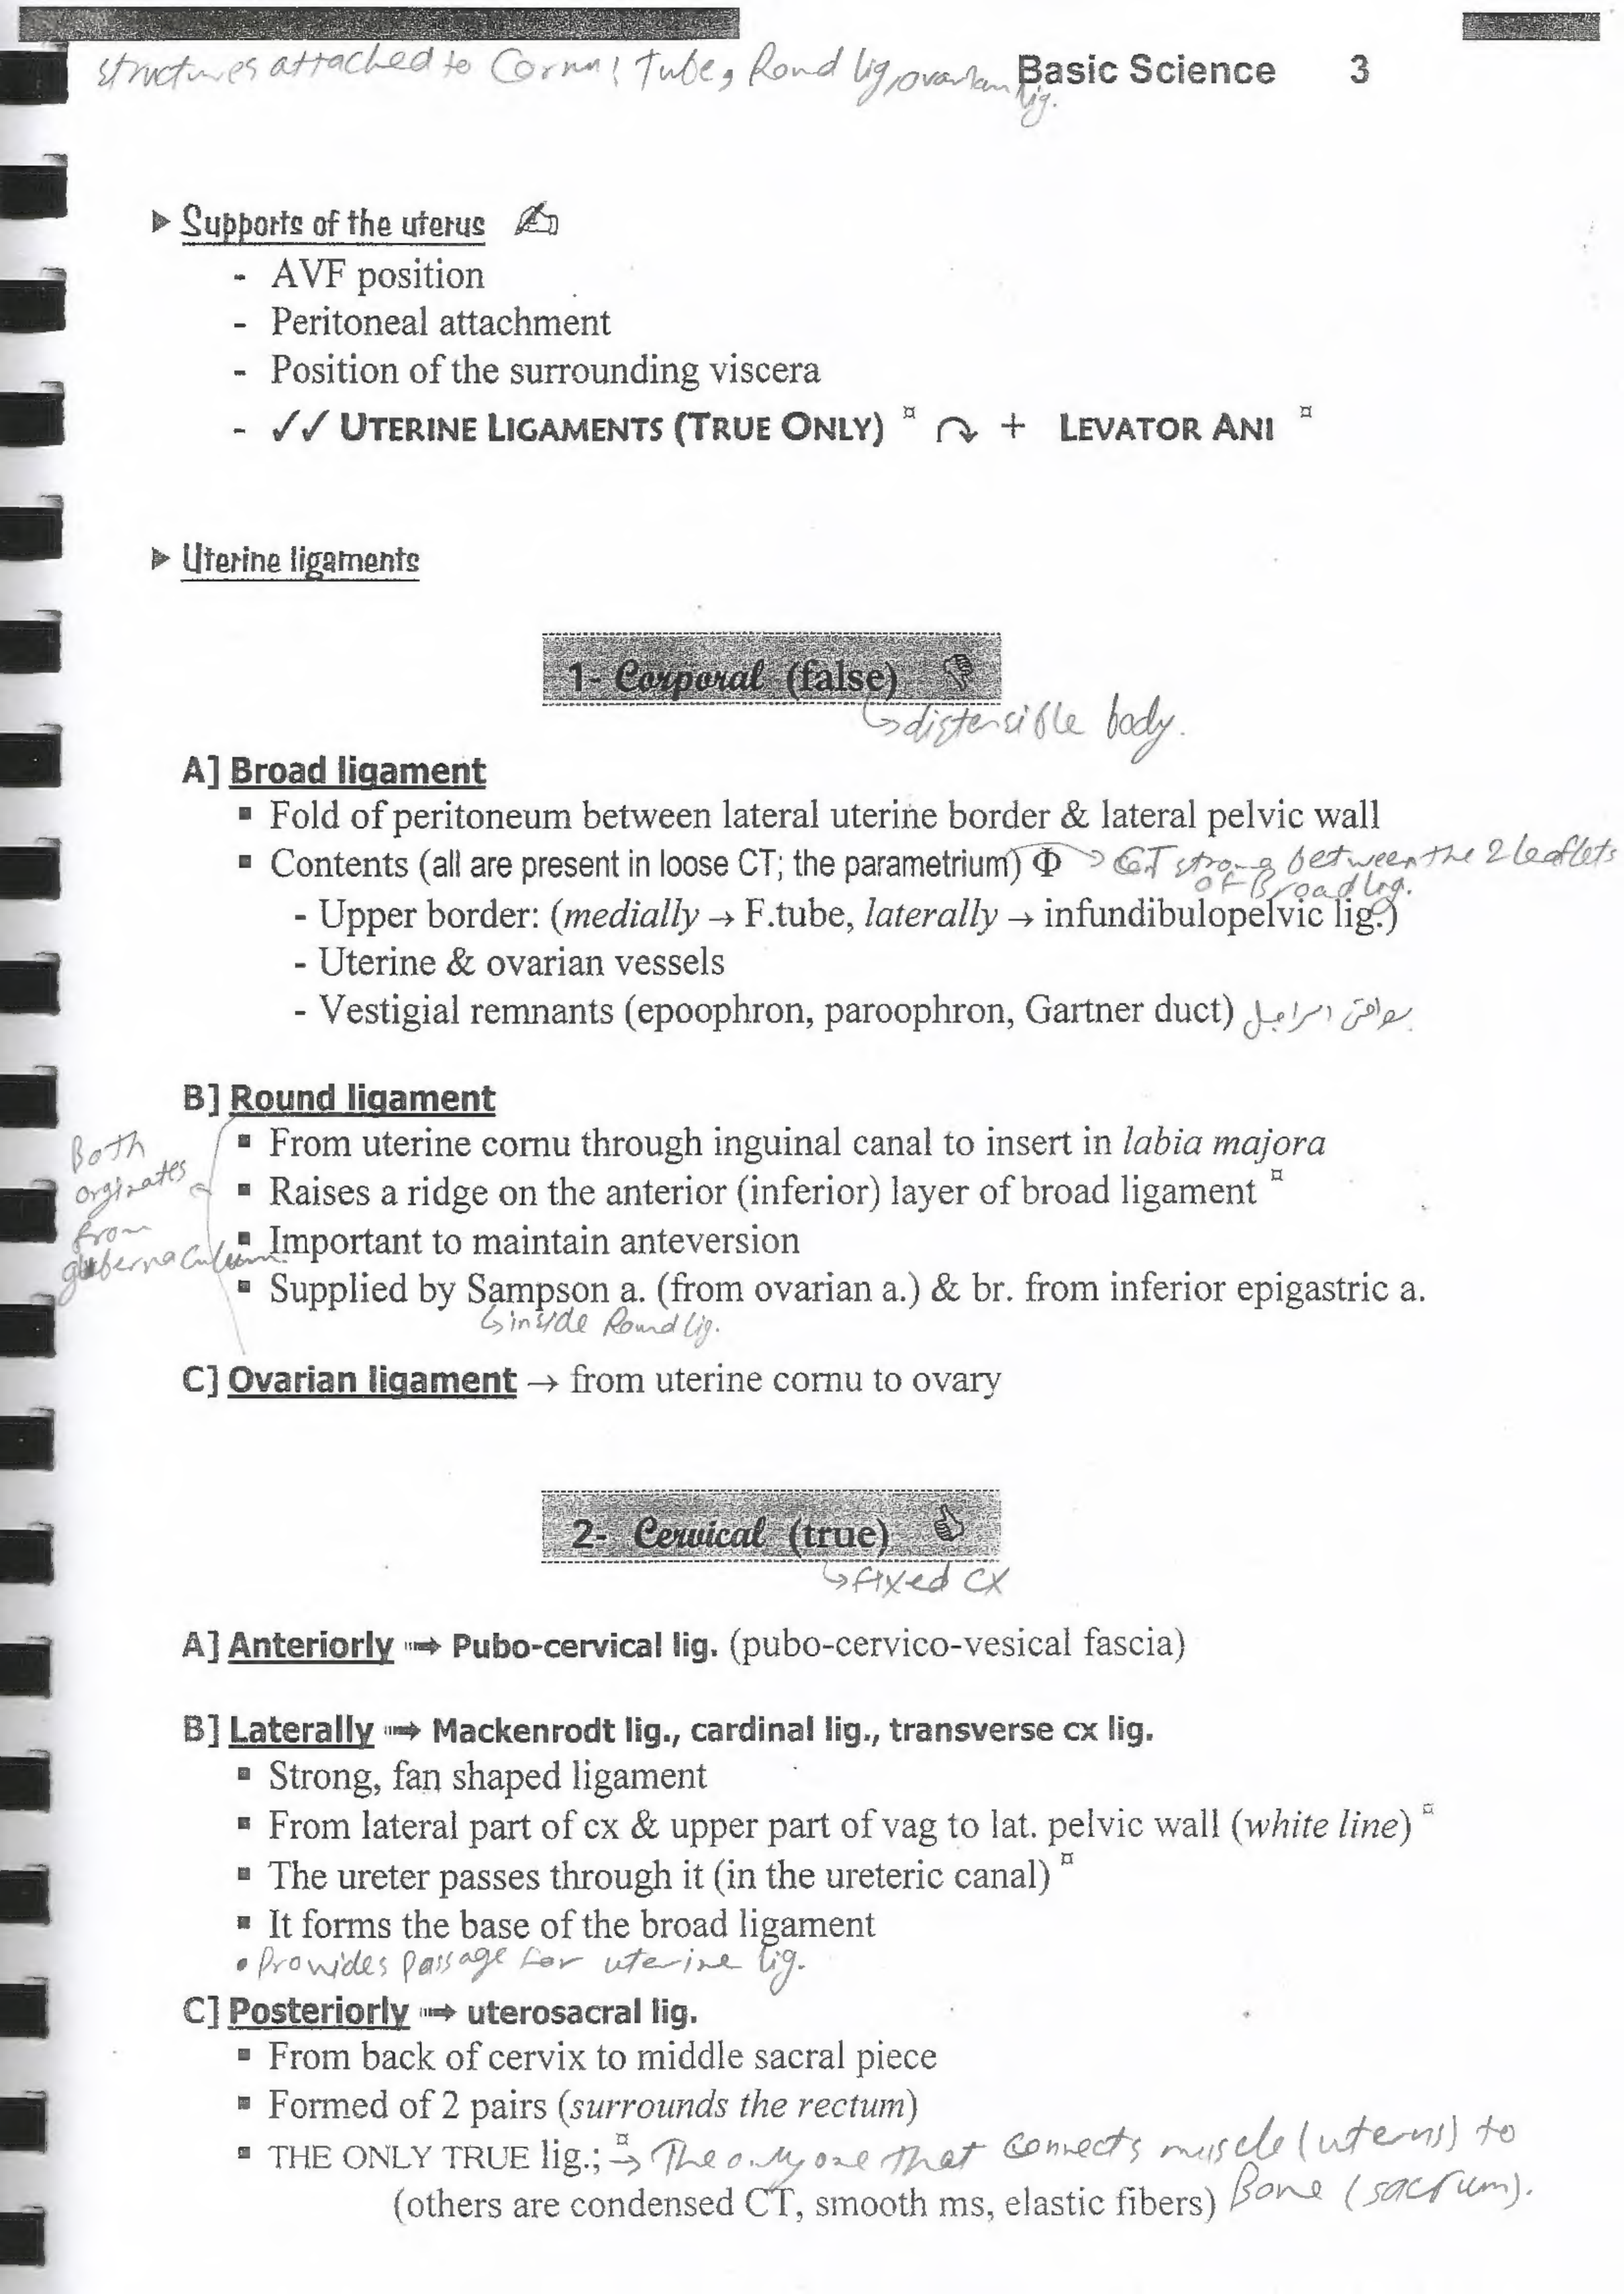 structures attached to Cornu: Tube, Rond lig, ovarian lig.
Basic Science 3
Supports of the uterus
- AVF position
- Peritoneal attachment
- Position of the surrounding viscera
- ✓✓ UTERINE LIGAMENTS (TRUE ONLY) ¤ + LEVATOR ANI ¤
Uterine ligaments
1- Corporal (false)
↳ distensible body.
A] Broad ligament
▪ Fold of peritoneum between lateral uterine border & lateral pelvic wall
▪ Contents (all are present in loose CT; the parametrium) Φ → CT strong between the 2 leaflets
of Broad Lig.
- Upper border: (medially → F.tube, laterally → infundibulopelvic lig.)
- Uterine & ovarian vessels
- Vestigial remnants (epoophron, paroophron, Gartner duct)
B] Round ligament
▪ From uterine cornu through inguinal canal to insert in labia majora
▪ Raises a ridge on the anterior (inferior) layer of broad ligament ¤
▪ Important to maintain anteversion
▪ Supplied by Sampson a. (from ovarian a.) & br. from inferior epigastric a.
↳ inside Round lig.
Both
orginates
from
gubernaculum
C] Ovarian ligament → from uterine cornu to ovary
2- Cervical (true)
↳ fixed cx
A] Anteriorly ➟ Pubo-cervical lig. (pubo-cervico-vesical fascia)
B] Laterally ➟ Mackenrodt lig., cardinal lig., transverse cx lig.
▪ Strong, fan shaped ligament
▪ From lateral part of cx & upper part of vag to lat. pelvic wall (white line) ¤
▪ The ureter passes through it (in the ureteric canal) ¤
▪ It forms the base of the broad ligament
• Provides passage for uterine lig.
C] Posteriorly ➟ uterosacral lig.
▪ From back of cervix to middle sacral piece
▪ Formed of 2 pairs (surrounds the rectum)
▪ THE ONLY TRUE lig.; ¤ → The only one that connects muscle (uterus) to
(others are condensed CT, smooth ms, elastic fibers) Bone (sacrum).